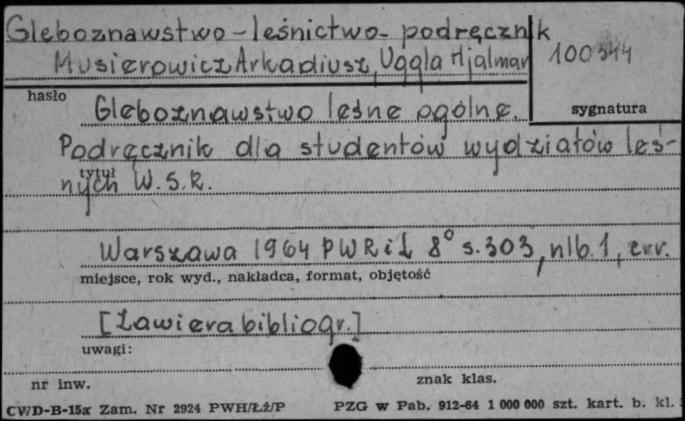 Gleboznawstwo - leśnictwo - podręcznik
Musierowicz Arkadiusz, Uggla Hjalmar
100344
hasło
sygnatura
Gleboznawstwo leśne ogólne.
Podręcznik dla studentów wydziałów leś-
tytuł
nych W.S.R.
Warszawa 1964 PWRiL 8° s. 303, nlb. 1, err.
miejsce, rok wyd., nakładca, format, objętość
[Zawiera bibliogr.]
uwagi:
nr inw.
znak klas.
CWD-B-15a Zam. Nr 2924 PWH/Łż/P PZG w Pab. 912-64 1 000 000 szt. kart. b. kl.